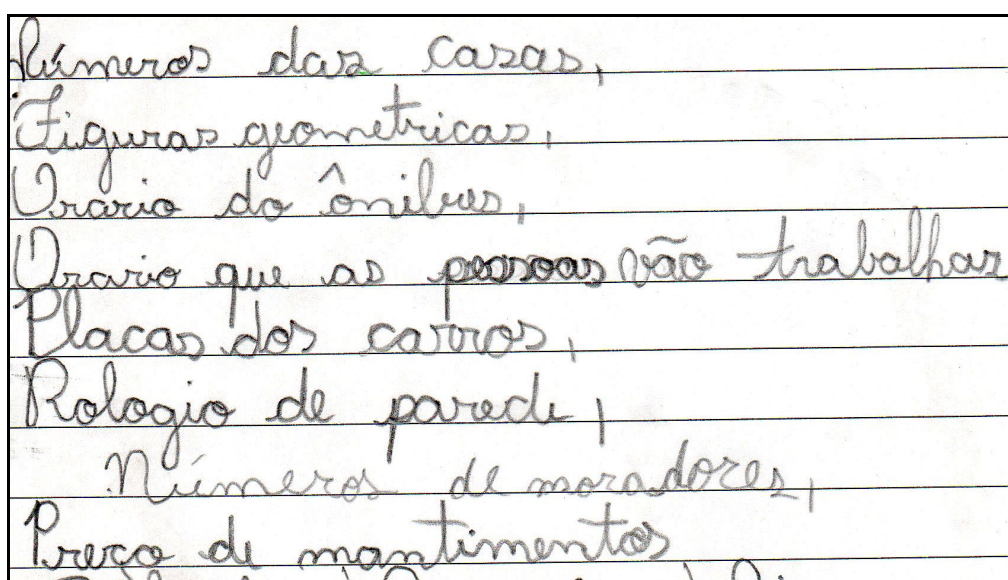 Números das casas,
Figuras geometricas,
Orario do ônibus,
Orario que as pessoas vão trabalhar
Placas dos carros,
Rologio de parede,
Números de moradores,
Preço de mantimentos